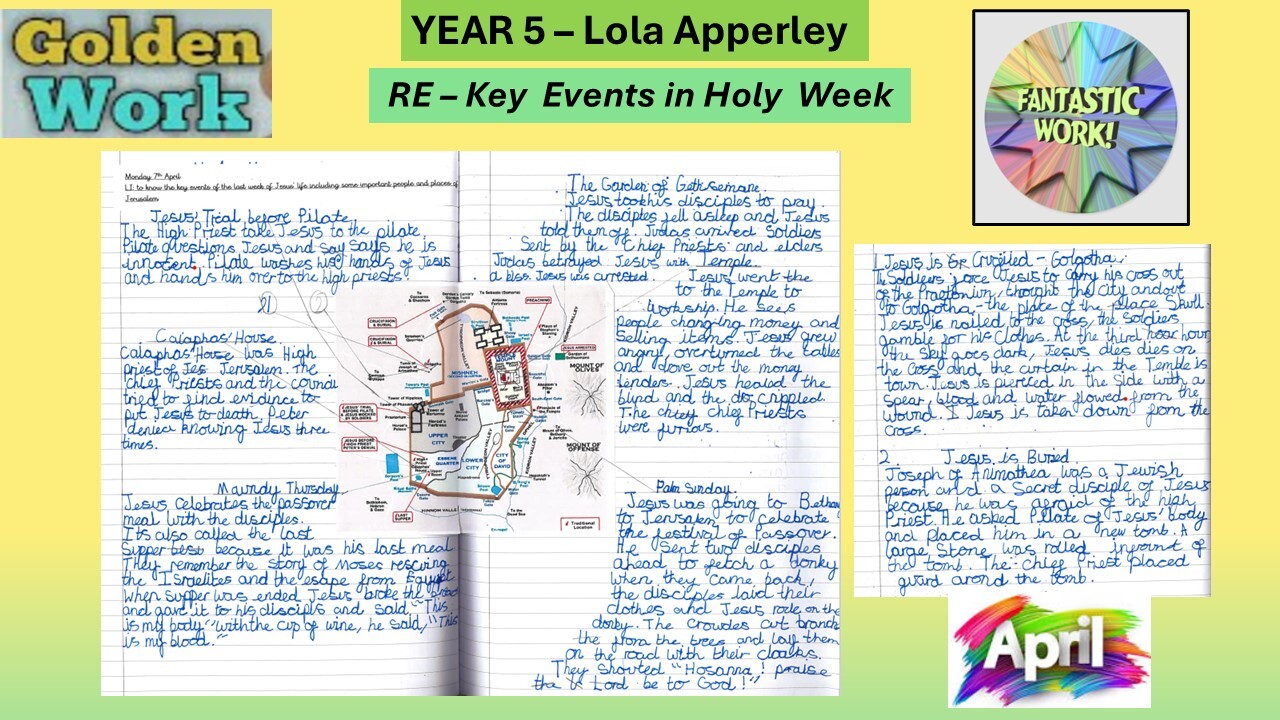 Golden
Work
YEAR 5 – Lola Apperley
RE – Key Events in Holy Week
FANTASTIC
WORK!
Monday 7th April
LI: to know the key events of the last week of Jesus' life including some important people and places of
Jerusalem
Jesus' Trial before Pilate.
The High Priest take Jesus to the pilate.
Pilate questions Jesus and say says he is
innocent. Pilate washes his hands of Jesus
and hands him over to the high priests.
Caiaphas' House.
Caiaphas' House was High
priest of Jes Jerusalem. The
Chief Priests and the council
tried to find evidence to
put Jesus to death. Peter
denied knowing Jesus three
times.
Maundy Thursday
Jesus celebrates the passover
meal with the disciples.
It's also called the last
supper because it was his last meal
They remember the story of Moses rescuing
the Israelites and the escape from Egypt
when supper was ended Jesus broke the
and gave it to his disciples and said, "This
is my body" with the cup of wine, he said, "This
is my blood."
The Garden of Gethsemane.
Jesus took his disciples to pray.
The disciples fell asleep and Jesus
told them off. Judas arrived Soldiers
Sent by the Chief Priests and elders
Judas betrayed Jesus with Temple.
a kiss. Jesus was arrested. Jesus went the
to the Temple to
workship. He sees
people changing money and
Selling items. Jesus grew
angry, overturned the tables
and drove out the money
lenders. Jesus healed the
blind and the crippled.
The chief Priests
were furious.
MISHNEH
UPPER
CITY
ESSENE
QUARTER
LOWER
CITY
CITY
OF
DAVID
MOUNT OF
OLIVES
MOUNT OF
OFFENSE
HINNOM VALLEY
PREACHING
JESUS ARRESTED
CRUCIFIXION
& BURIAL
CRUCIFIXION
& BURIAL
JESUS' TRIAL
BEFORE PILATE
& JESUS MOCKED
BY SOLDIERS
JESUS BEFORE
HIGH PRIEST,
PETER'S DENIAL
LAST
SUPPER
Traditional
Location
Palm Sunday
Jesus was going to
to Jerusalem to celebrate
the festival of Passover.
He sent two disciples
ahead to fetch a donky
when they came back,
the disciples laid their
clothes and Jesus rode on the
donky. The crowdes cut branch
the from the trees and lay them
on the road with their cloaks.
They Shouted "Hosanna! praise
the Lord be to God!"
1 Jesus is Crucified - Golgotha.
The Soldiers force Jesus to carry his coss out
of the Praetorium, thought the City and out
to Golgotha - the place of the place Skull.
Jesus is nailed to the cross, the Soldiers
gamble for his clothes. At the third hour
the Sky goes dark. Jesus dies dies on
the Coss and the curtain in the Temple is
town. Jesus is pierced in the Side with a
spear, blood and water flowed from the
wound. Jesus is taken down from the
cross.
2. Jesus is Buried.
Joseph of Arimathea was a Jewish
person and a Secret disciple of Jesus
because he was afraid of the high
Priest. He asked Pilate of Jesus' body
and placed him in a new tomb. A
large Stone was rolled infront of
the tomb. The Chief Priest placed
guard arond the tomb.
April